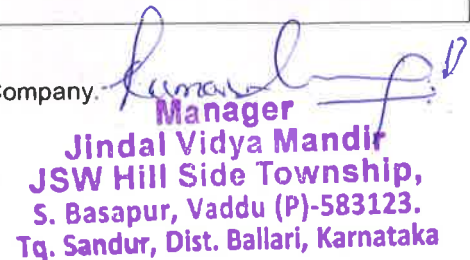 Company.
Manager
Jindal Vidya Mandir
JSW Hill Side Township,
S. Basapur, Vaddu (P)-583123.
Tq. Sandur, Dist. Ballari, Karnataka